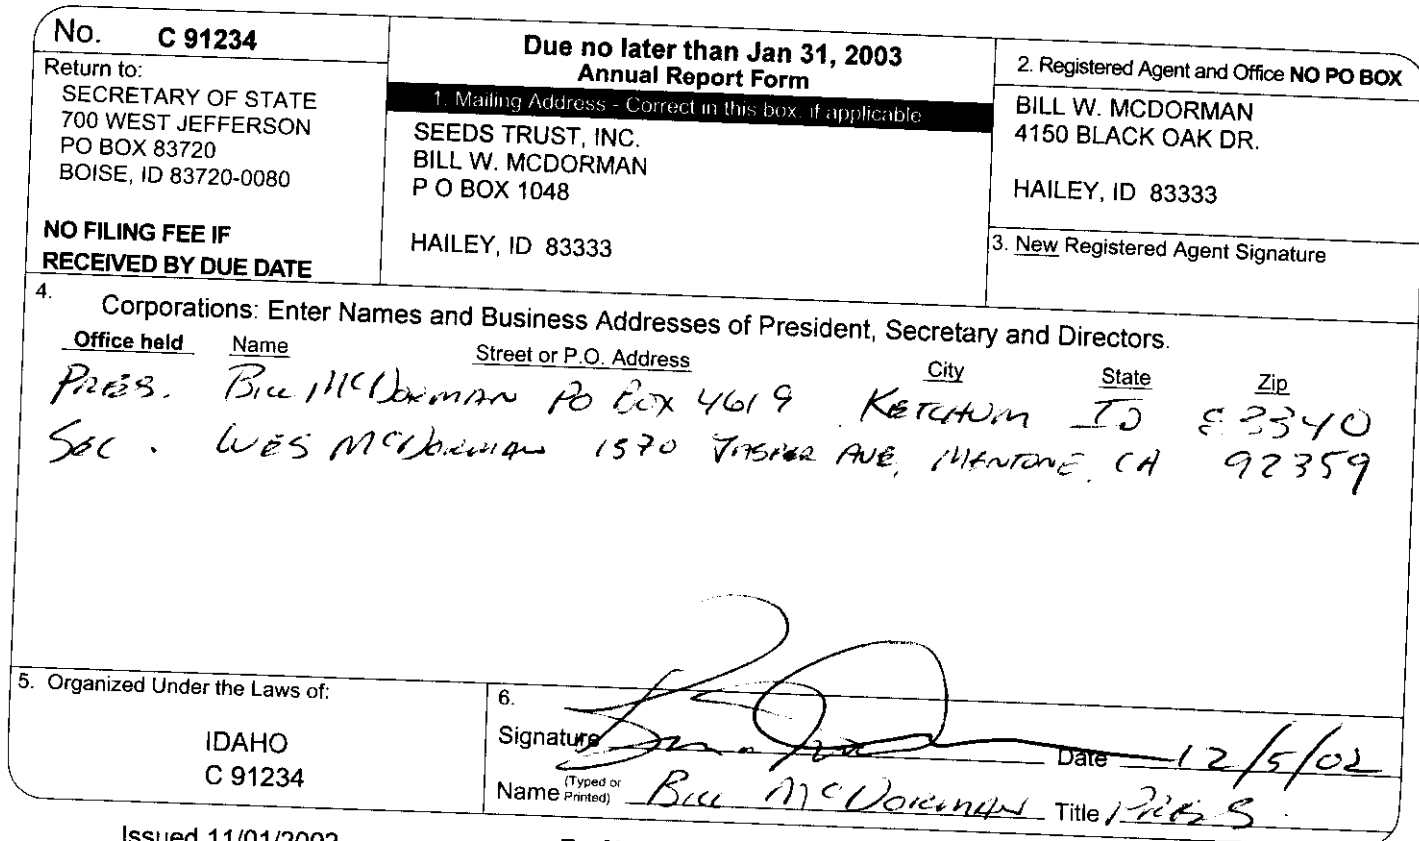 No. C 91234
Return to:
SECRETARY OF STATE
700 WEST JEFFERSON
PO BOX 83720
BOISE, ID 83720-0080
NO FILING FEE IF
RECEIVED BY DUE DATE
Due no later than Jan 31, 2003
Annual Report Form
1. Mailing Address - Correct in this box, if applicable
SEEDS TRUST, INC.
BILL W. MCDORMAN
P O BOX 1048
HAILEY, ID 83333
2. Registered Agent and Office NO PO BOX
BILL W. MCDORMAN
4150 BLACK OAK DR.
HAILEY, ID 83333
3. New Registered Agent Signature
4. Corporations: Enter Names and Business Addresses of President, Secretary and Directors.
Office held Name Street or P.O. Address City State Zip
PRES. BILL MCDORMAN PO BOX 4619 KETCHUM ID 83340
SEC. WES MCDORMAN 1570 JASPER AVE, MENTONE, CA 92359
5. Organized Under the Laws of:
IDAHO
C 91234
6.
Signature Date 12/5/02
Name (Typed or Printed) BILL MCDORMAN Title PRES
Issued 11/01/2002